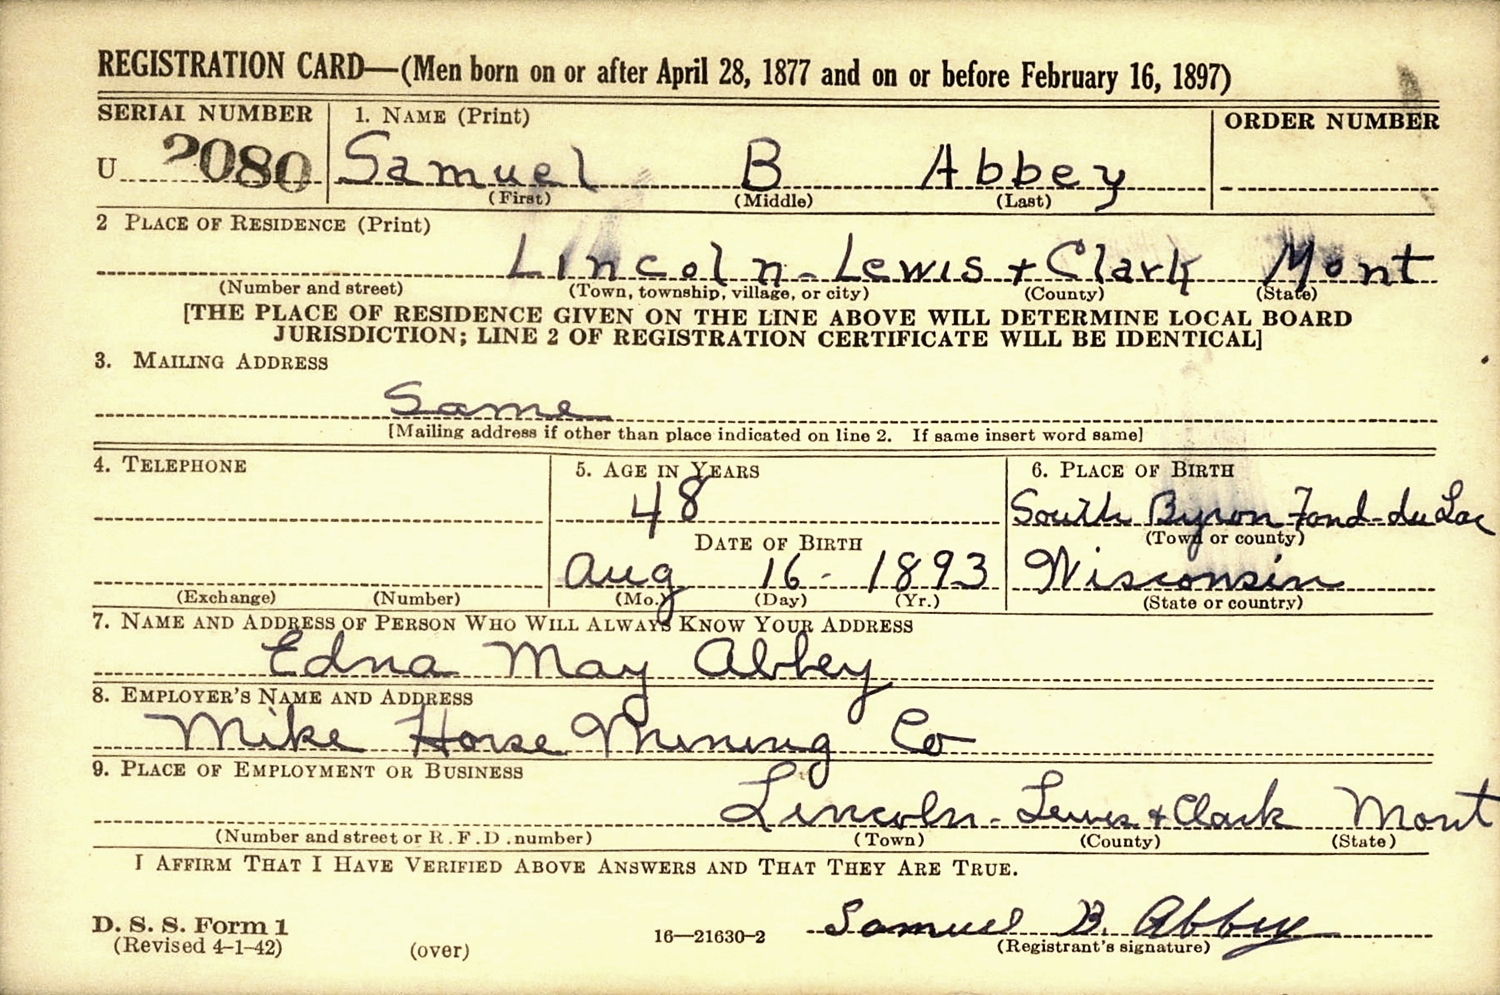 REGISTRATION CARD—(Men born on or after April 28, 1877 and on or before February 16, 1897)
SERIAL NUMBER 1. NAME (Print) ORDER NUMBER
U 2080 Samuel B Abbey
(First) (Middle) (Last)
2 PLACE OF RESIDENCE (Print)
Lincoln - Lewis + Clark Mont
(Number and street) (Town, township, village, or city) (County) (State)
[THE PLACE OF RESIDENCE GIVEN ON THE LINE ABOVE WILL DETERMINE LOCAL BOARD
JURISDICTION; LINE 2 OF REGISTRATION CERTIFICATE WILL BE IDENTICAL]
3. MAILING ADDRESS
Same
[Mailing address if other than place indicated on line 2. If same insert word same]
4. TELEPHONE 5. AGE IN YEARS 6. PLACE OF BIRTH
48 South Byron Fond-du Lac
(Town or county)
DATE OF BIRTH
Aug 16 - 1893 Wisconsin
(Exchange) (Number) (Mo.) (Day) (Yr.) (State or country)
7. NAME AND ADDRESS OF PERSON WHO WILL ALWAYS KNOW YOUR ADDRESS
Edna May Abbey
8. EMPLOYER'S NAME AND ADDRESS
Mike Horse Mining Co
9. PLACE OF EMPLOYMENT OR BUSINESS
Lincoln - Lewis + Clark Mont
(Number and street or R. F. D. number) (Town) (County) (State)
I AFFIRM THAT I HAVE VERIFIED ABOVE ANSWERS AND THAT THEY ARE TRUE.
Samuel B. Abbey
D. S. S. Form 1
(Revised 4-1-42) (over) 16—21630-2 (Registrant's signature)